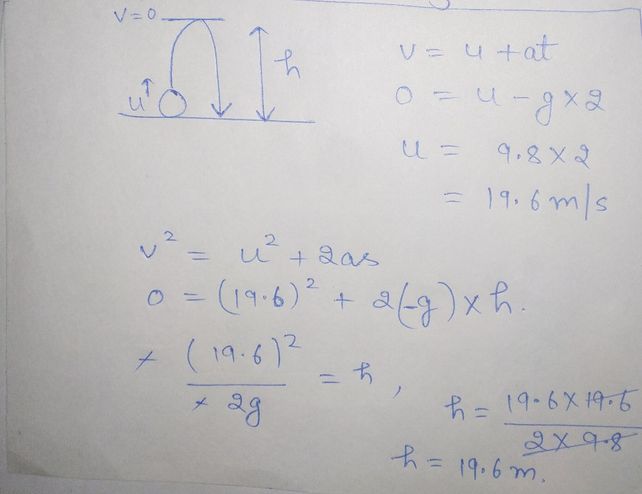 v=0
h
u
v = u + at
0 = u - g × 2
u = 9.8 × 2
= 19.6 m/s
v² = u² + 2as
0 = (19.6)² + 2(-g) × h.
+ (19.6)² / + 2g = h ,
h = 19.6 × 19.6 / 2 × 9.8
h = 19.6 m.